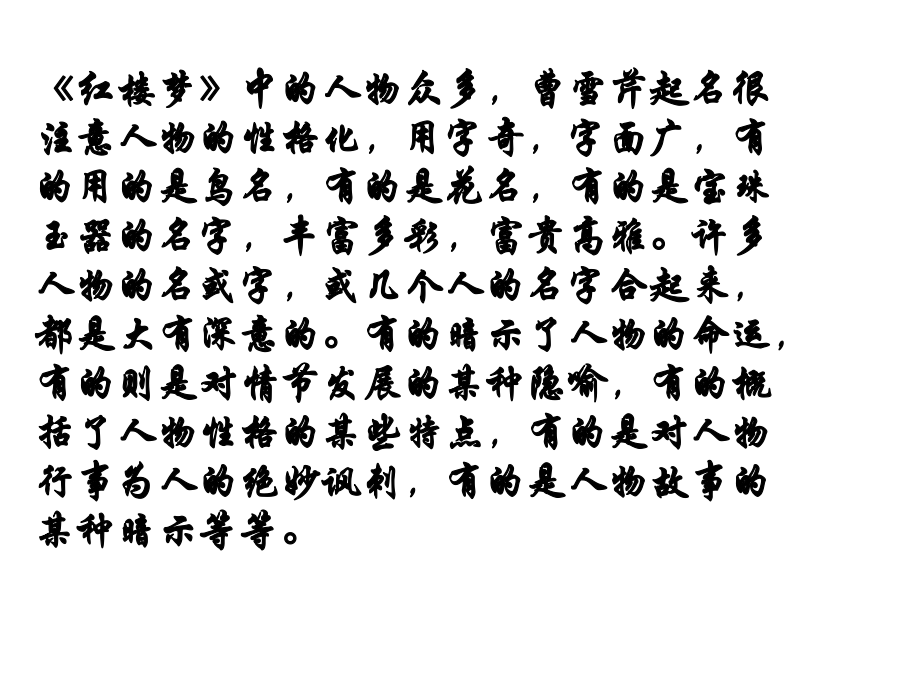 《红楼梦》中的人物众多，曹雪芹起名很
注意人物的性格化，用字奇，字面广，有
的用的是鸟名，有的是花名，有的是宝珠
玉器的名字，丰富多彩，富贵高雅。许多
人物的名或字，或几个人的名字合起来，
都是大有深意的。有的暗示了人物的命运，
有的则是对情节发展的某种隐喻，有的概
括了人物性格的某些特点，有的是对人物
行事为人的绝妙讽刺，有的是人物故事的
某种暗示等等。